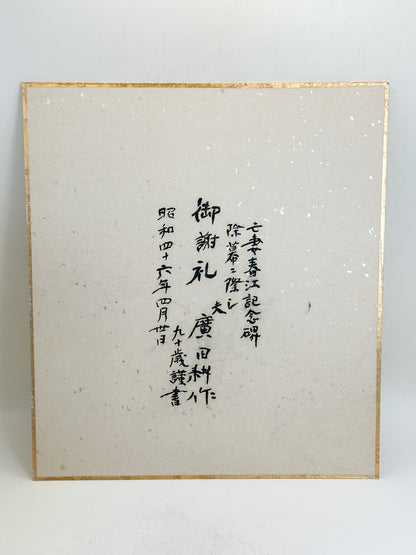 亡妻春江記念碑
除幕ニ際し
夫 廣田耕作
御謝礼
昭和四十六年四月廿日
九十歳謹書